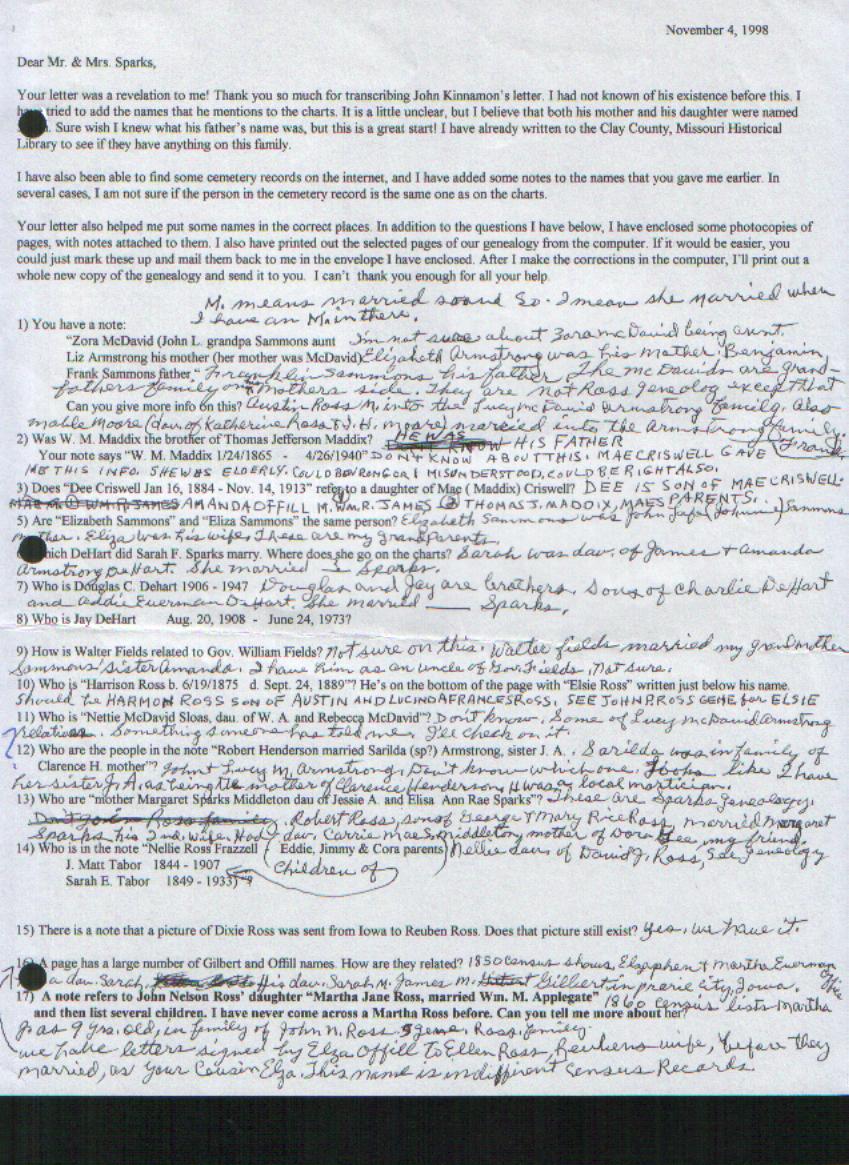 November 4, 1998
Dear Mr. & Mrs. Sparks,
Your letter was a revelation to me! Thank you so much for transcribing John Kinnamon's letter. I had not known of his existence before this. I
have tried to add the names that he mentions to the charts. It is a little unclear, but I believe that both his mother and his daughter were named
Sure wish I knew what his father's name was, but this is a great start! I have already written to the Clay County, Missouri Historical
Library to see if they have anything on this family.
I have also been able to find some cemetery records on the internet, and I have added some notes to the names that you gave me earlier. In
several cases, I am not sure if the person in the cemetery record is the same one as on the charts.
Your letter also helped me put some names in the correct places. In addition to the questions I have below, I have enclosed some photocopies of
pages, with notes attached to them. I also have printed out the selected pages of our genealogy from the computer. If it would be easier, you
could just mark these up and mail them back to me in the envelope I have enclosed. After I make the corrections in the computer, I'll print out a
whole new copy of the genealogy and send it to you. I can't thank you enough for all your help.
M. means married so and So. I mean she married when
I have an M. in there.
1) You have a note:
"Zora McDavid (John L. grandpa Sammons aunt I'm not sure about Zora McDavid being aunt.
Liz Armstrong his mother (her mother was McDavid) Elizabeth Armstrong was his mother, Benjamin
Frank Sammons father" Franklin Sammons his father. The McDavids are grand-
fathers family on Mothers side. They are not Ross geneolog except that
Can you give more info on this? Austin Ross M. into the Lucy McDavid Armstrong family. Also
mable Moore (dau. of Katherine Ross & J. H. moore) married into the Armstrong family.
2) Was W. M. Maddix the brother of Thomas Jefferson Maddix? HE WAS HIS FATHER
Your note says "W. M. Maddix 1/24/1865 - 4/26/1940" DON'T KNOW ABOUT THIS. MAE CRISWELL GAVE
ME THIS INFO. SHE WAS ELDERLY. COULD BE WRONG OR I MISUNDERSTOOD, COULD BE RIGHT ALSO.
3) Does "Dee Criswell Jan 16, 1884 - Nov. 14, 1913" refer to a daughter of Mae (Maddix) Criswell? DEE IS SON OF MAE CRISWELL.
AMANDA OFFILL M. WM. R. JAMES ② THOMAS J. MADDIX, MAES PARENTS.
5) Are "Elizabeth Sammons" and "Eliza Sammons" the same person? Elizabeth Sammons was John (Johnnie) Sammons
mother. Eliza was his wife, These are my grandparents.
hich DeHart did Sarah F. Sparks marry. Where does she go on the charts? Sarah was dau. of James & Amanda
Armstrong DeHart. She married Sparks.
7) Who is Douglas C. Dehart 1906 - 1947 Douglas and Jay are brothers, sons of Charlie DeHart
and addie Everman DeHart. She married ___ Sparks.
8) Who is Jay DeHart Aug. 20, 1908 - June 24, 1973?
9) How is Walter Fields related to Gov. William Fields? Not sure on this. Walter fields married my grandmother
Sammons' sister Amanda. I have him as an uncle of Gov. Fields, Not sure.
10) Who is "Harrison Ross b. 6/19/1875 d. Sept. 24, 1889"? He's on the bottom of the page with "Elsie Ross" written just below his name.
Should be HARMON ROSS SON OF AUSTIN AND LUCINDA FRANCES ROSS. SEE JOHN P. ROSS GENE FOR ELSIE
11) Who is "Nettie McDavid Sloas, dau. of W. A. and Rebecca McDavid"? Don't know. Some of Lucy McDavid Armstrong
relatives. Something someone has told me, I'll check on it.
12) Who are the people in the note "Robert Henderson married Sarilda (sp?) Armstrong, sister J. A. . Sarilda was in family of
Clarence H. mother"? John & Lucy M. Armstrong, Don't know which one. Looks like I have
her sister J. A. as being the mother of Clarence Henderson. He was a local mortician.
13) Who are "mother Margaret Sparks Middleton dau of Jessie A. and Elisa Ann Rae Sparks"? These are Sparks Geneology.
Robert Ross, son of George & Mary Rice Ross, married Margaret
Sparks his 2nd. wife. Had dau. Carrie Mae S. Middleton, mother of Dora Gee, my friend.
14) Who is in the note "Nellie Ross Frazzell ( Eddie, Jimmy & Cora parents) Nellie dau. of David J. Ross, See Geneology
J. Matt Tabor 1844 - 1907 Children of
Sarah E. Tabor 1849 - 1933)"?
15) There is a note that a picture of Dixie Ross was sent from Iowa to Reuben Ross. Does that picture still exist? Yes, we have it.
16) A page has a large number of Gilbert and Offill names. How are they related? 1850 census shows, Elzaphen & Martha Everman
a dau. Sarah, His dau. Sarah M. James M. Gilbert in prarie City, Iowa.
17) A note refers to John Nelson Ross' daughter "Martha Jane Ross, married Wm. M. Applegate" 1860 Census lists Martha
and then list several children. I have never come across a Martha Ross before. Can you tell me more about her?
J as 9 yrs. old, in family of John N. Ross gene. Ross family.
we have letters signed by Elza Offill to Ellen Ross, Reubens wife, before they
married, as Your Cousin Elza. This name is in different Census Records.